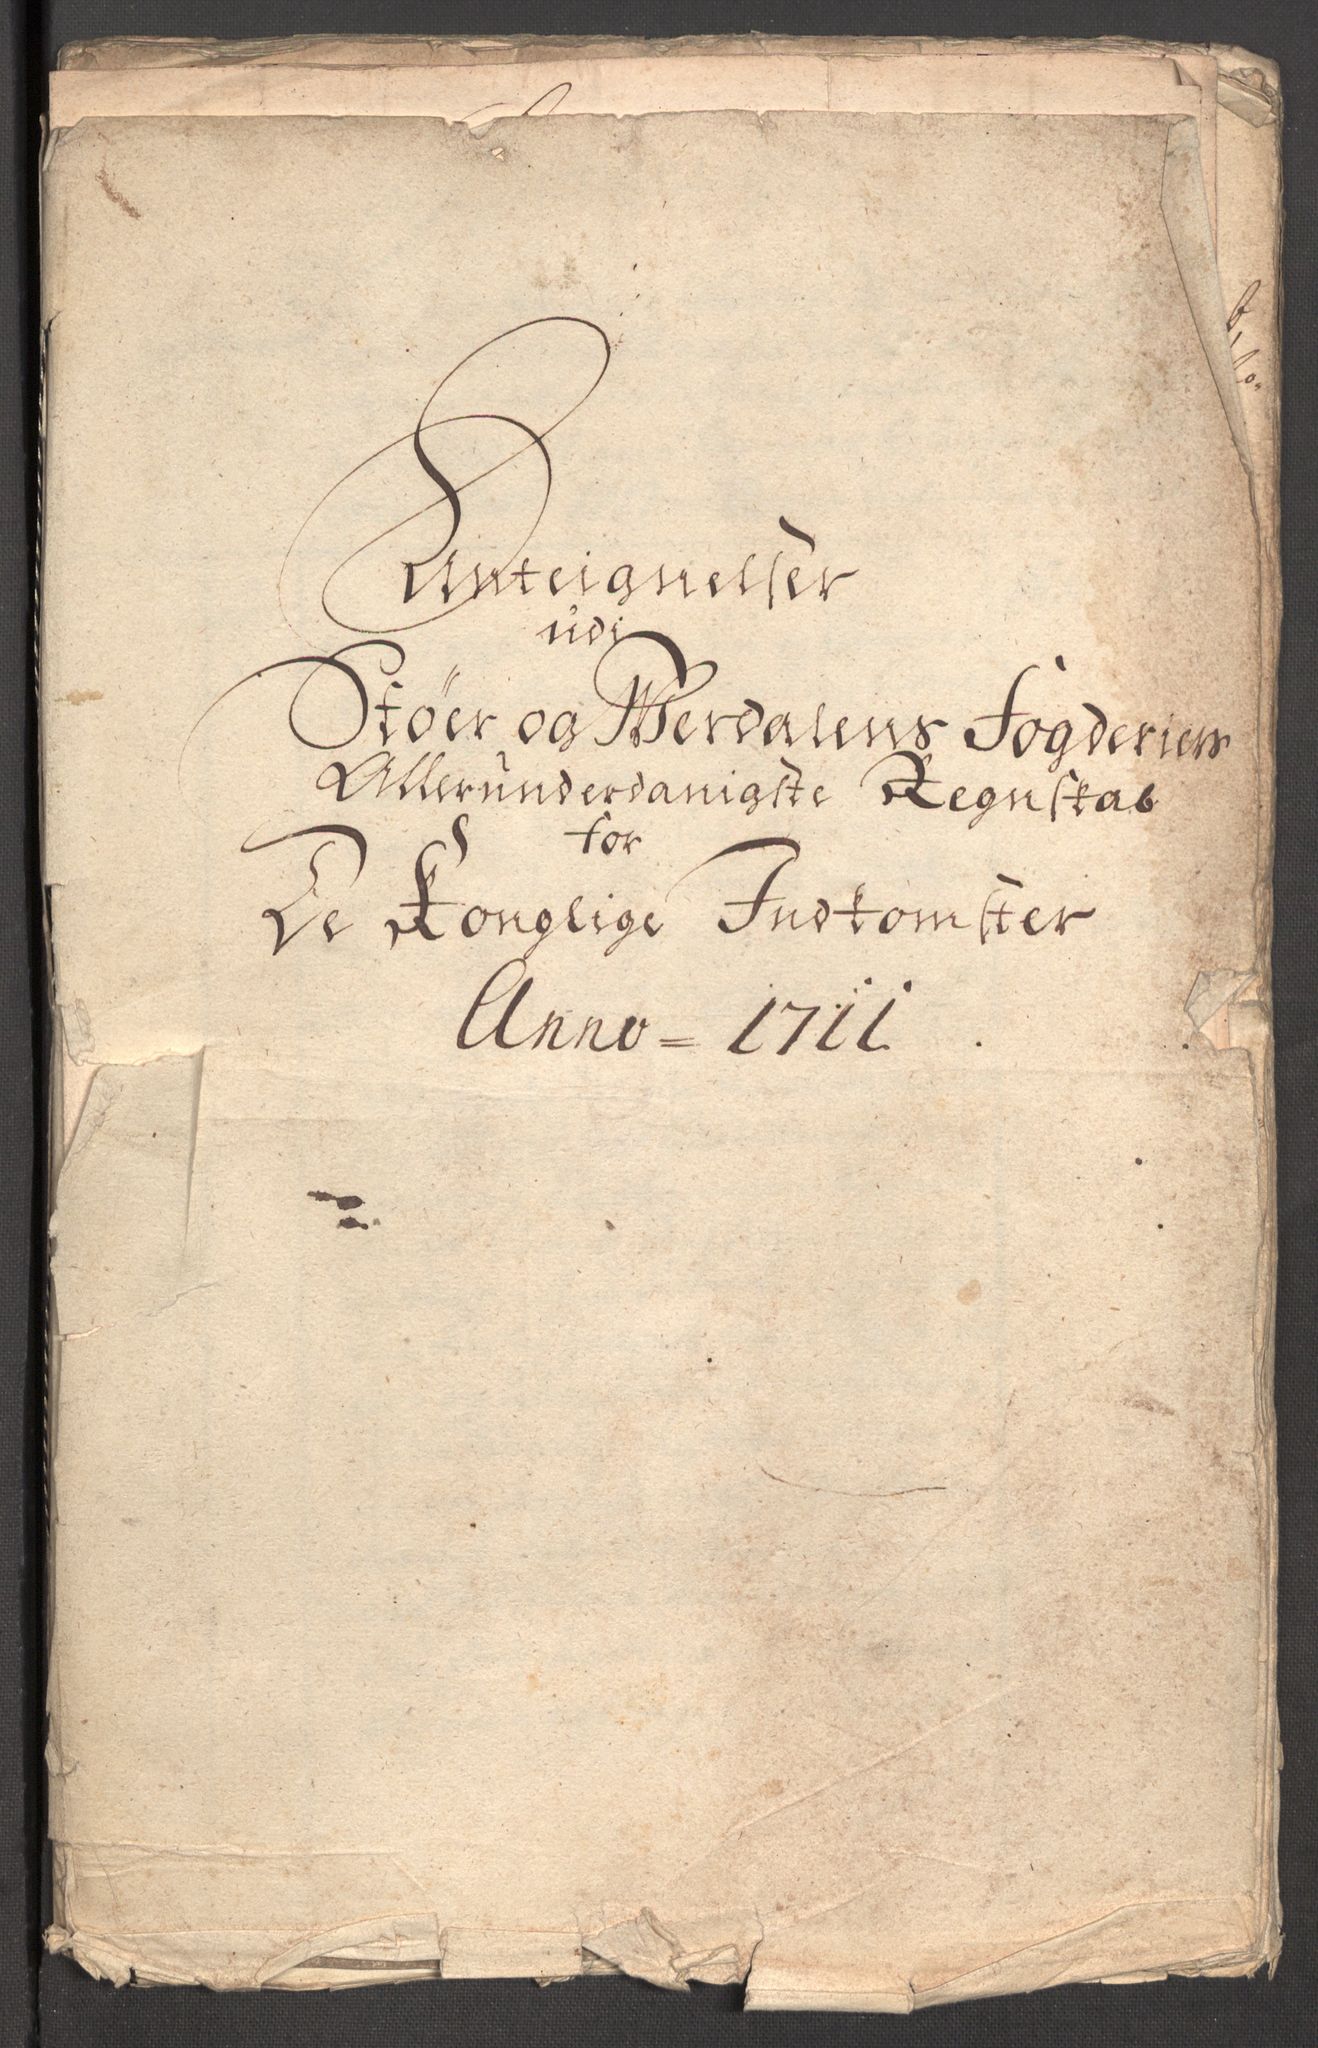 Anteignelser
udi
Støer og Werdalens Fogderiers
Allerunderdanigste Regnskab
for
De Konglige Indkomster
Anno = 1711